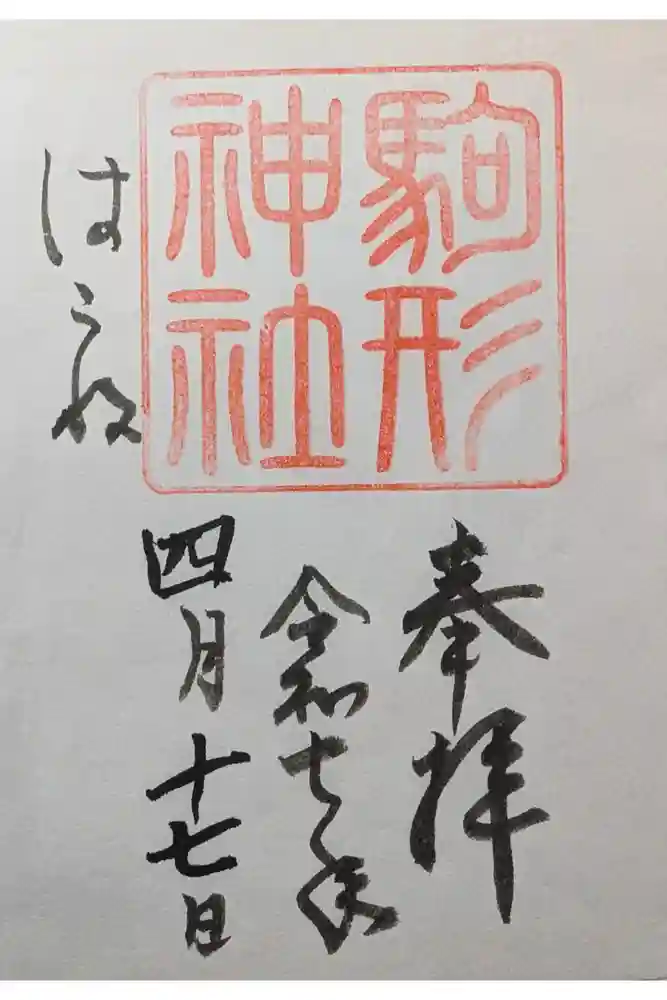 駒形
神社
はこね
奉拝
令和七年
四月十七日